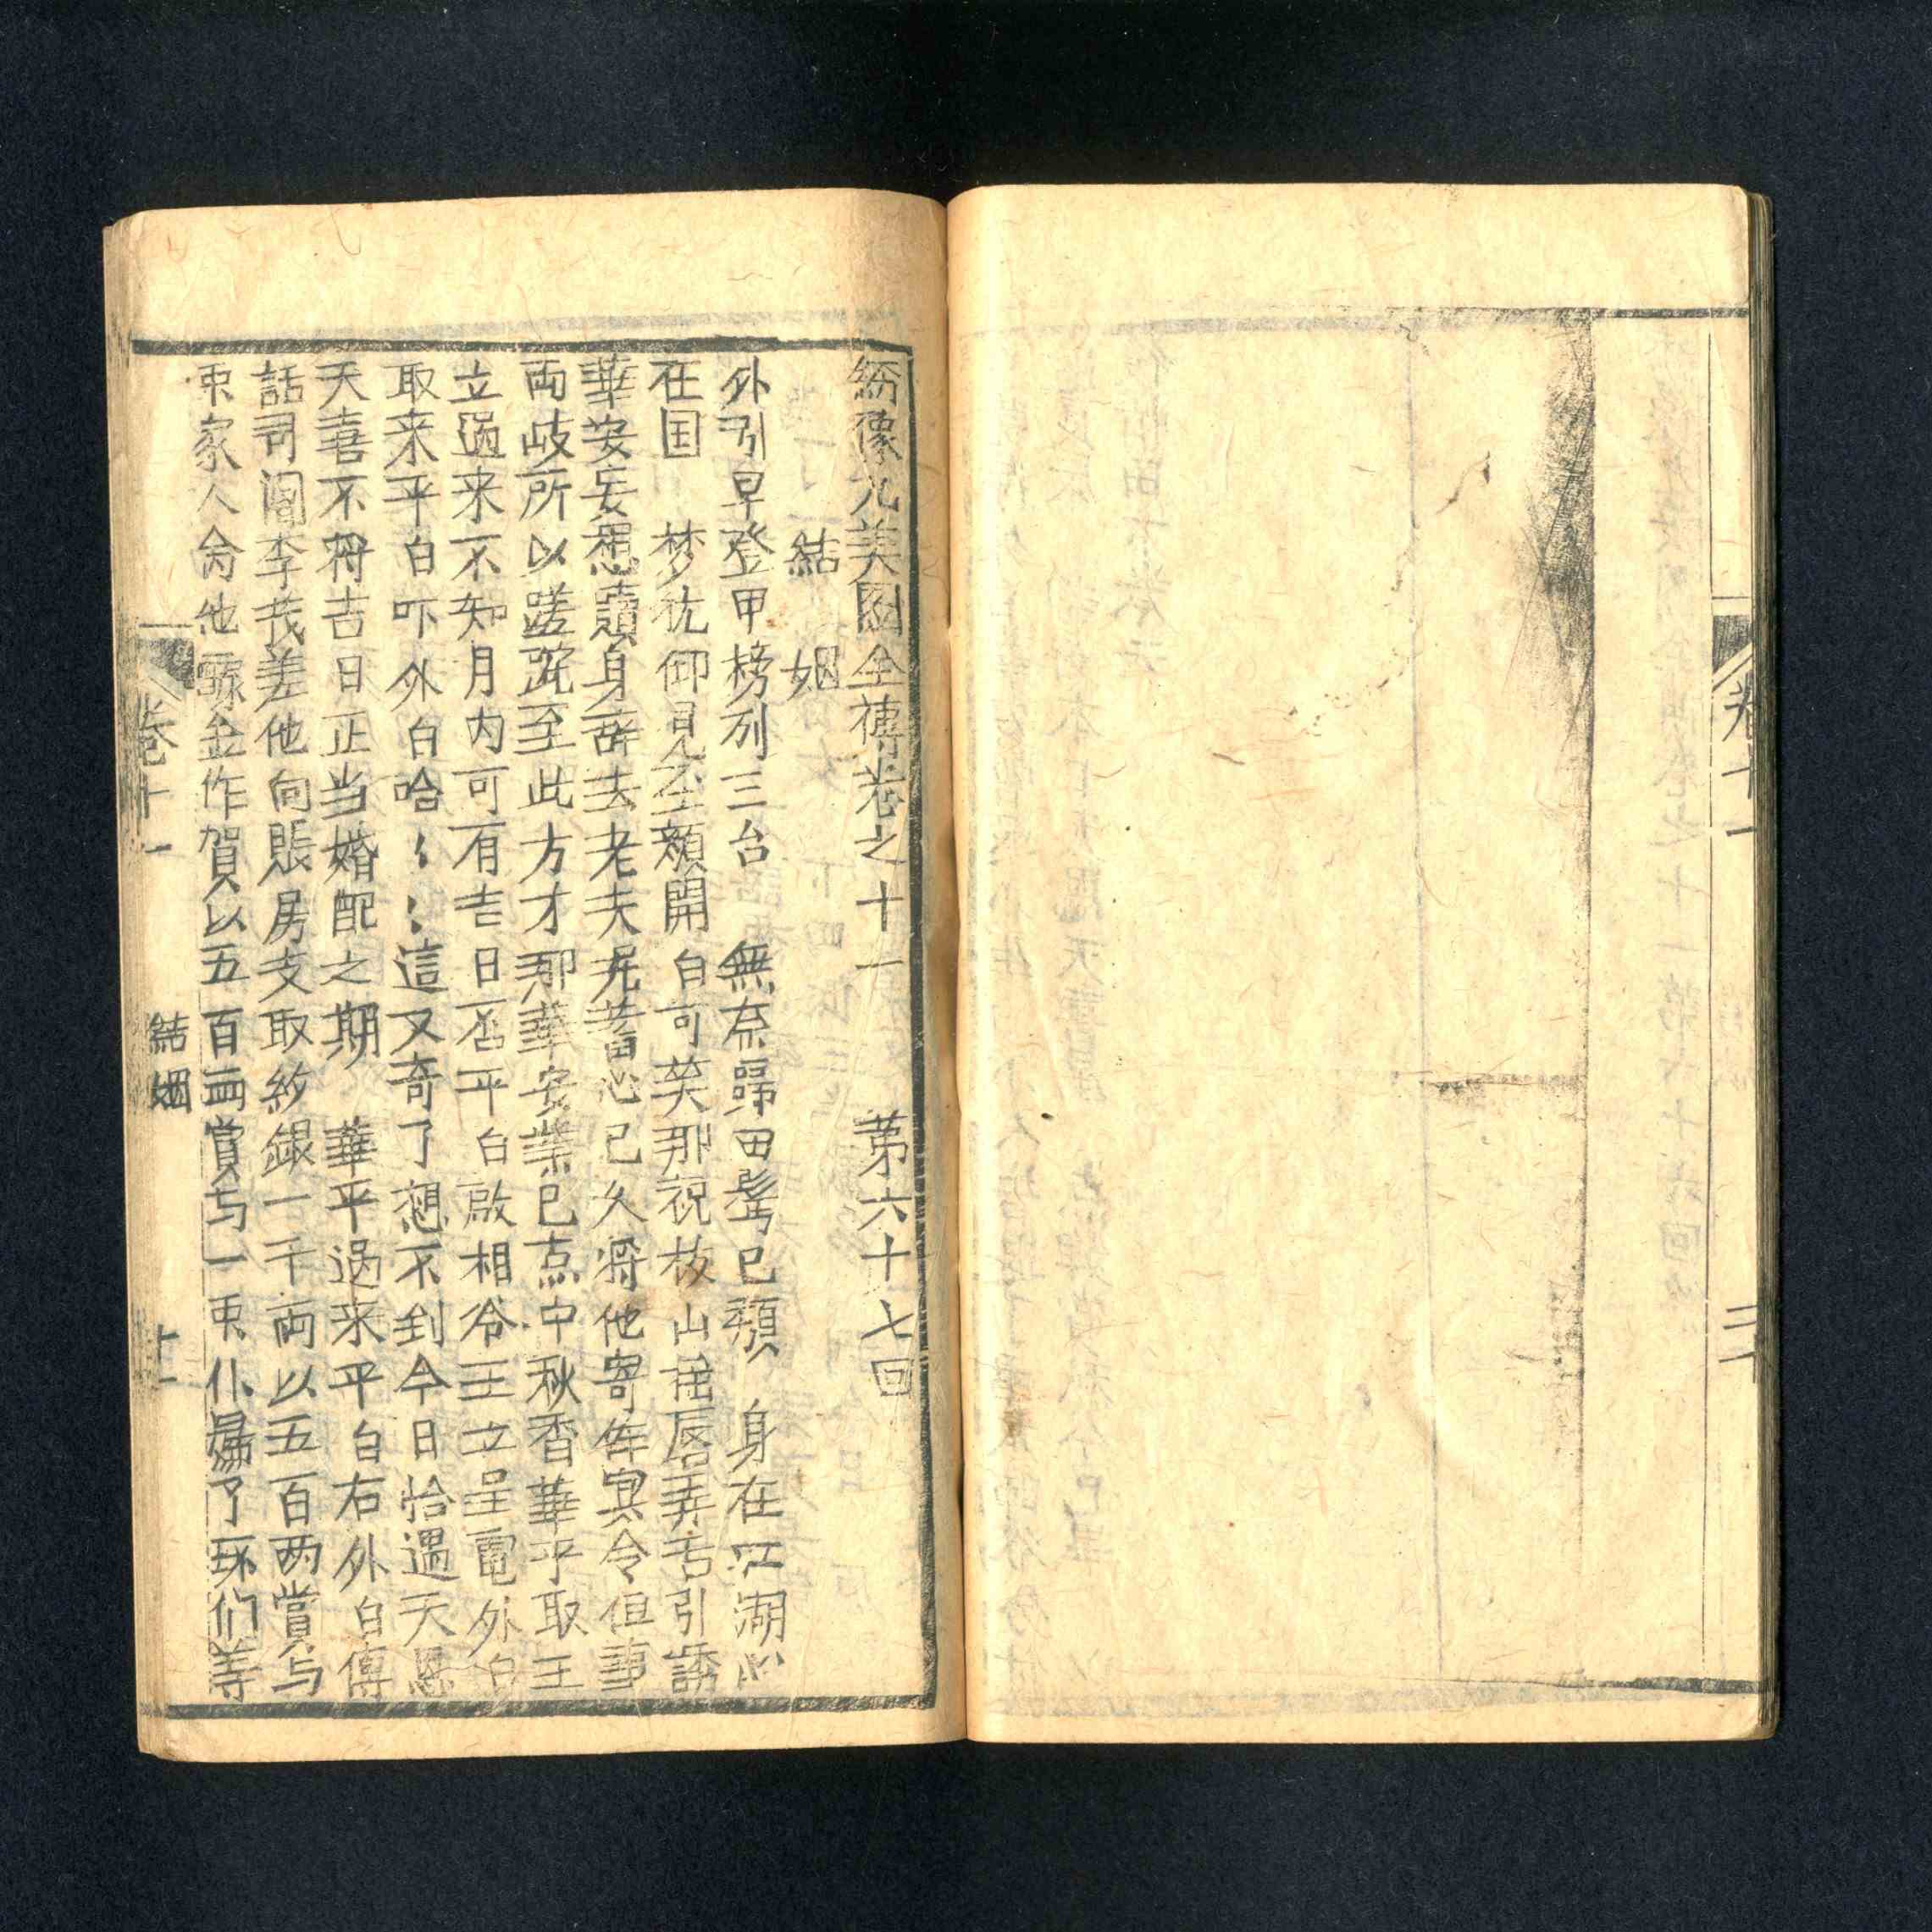 卷十一
三十
綉像九美图全傳卷之十一　第六十七回
結姻
外引早登甲榜列三台　無奈歸田髩已頹　身在江湖心
在国　梦枕仰見圣顏開　白可笑那祝枝山謡唇弄舌引誘
華安妄想贖身辞去老夫旡蓄心已久将他寄侔寞令但事
両岐所以蹉跎至此方才那華安業已点中秋香華平取王
立過来不知月内可有吉日否平白啟相爷王立呈電外白
取来平白吓外白哈〻〻〻這又奇了想不到今日恰遇天恩
天喜不将吉日正当婚配之期　華平過来平白右外白傳
話司阍李茂差他向賬房支取紋銀一千両以五百两賞与
家人為他　金作賀以五百両賞与一　仆婦了环们等
卷十一
結姻
十一